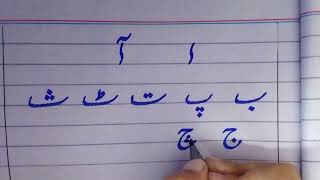 ا آ
ب پ ت ٹ ث
ج چ